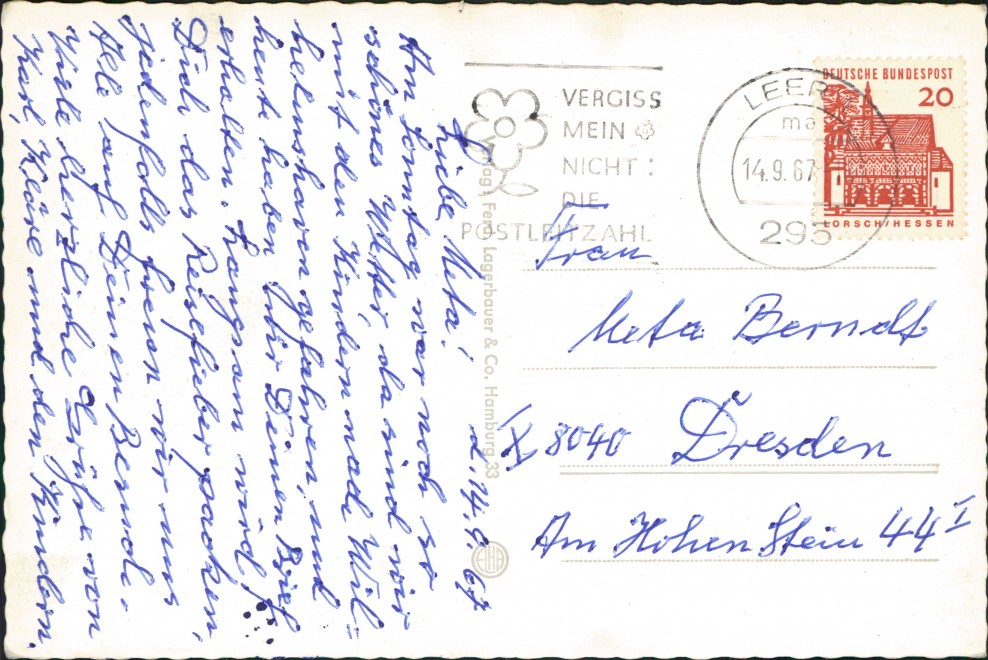 L. 14.9.67
Liebe Meta!
Am Sonntag war noch so
schönes Wetter, da sind wir
mit den Kindern nach Wil-
helmshaven gefahren, und
heute haben wir Deinen Brief
erhalten. Langsam wird f.
Dich das Reisefieber packen,
jedenfalls freuen wir uns
Alle auf Deinen Besuch.
Viele herzliche Grüße von
Karl, Kläre und den Kindern.
Lagerbauer & Co. Hamburg 33
VERGISS
MEIN
NICHT:
DIE
POSTLEITZAHL
LEER
14.9.67
295
DEUTSCHE BUNDESPOST
20
LORSCH/HESSEN
Frau
Meta Berndt
X 8040 Dresden
Am Hohen Stein 44 I